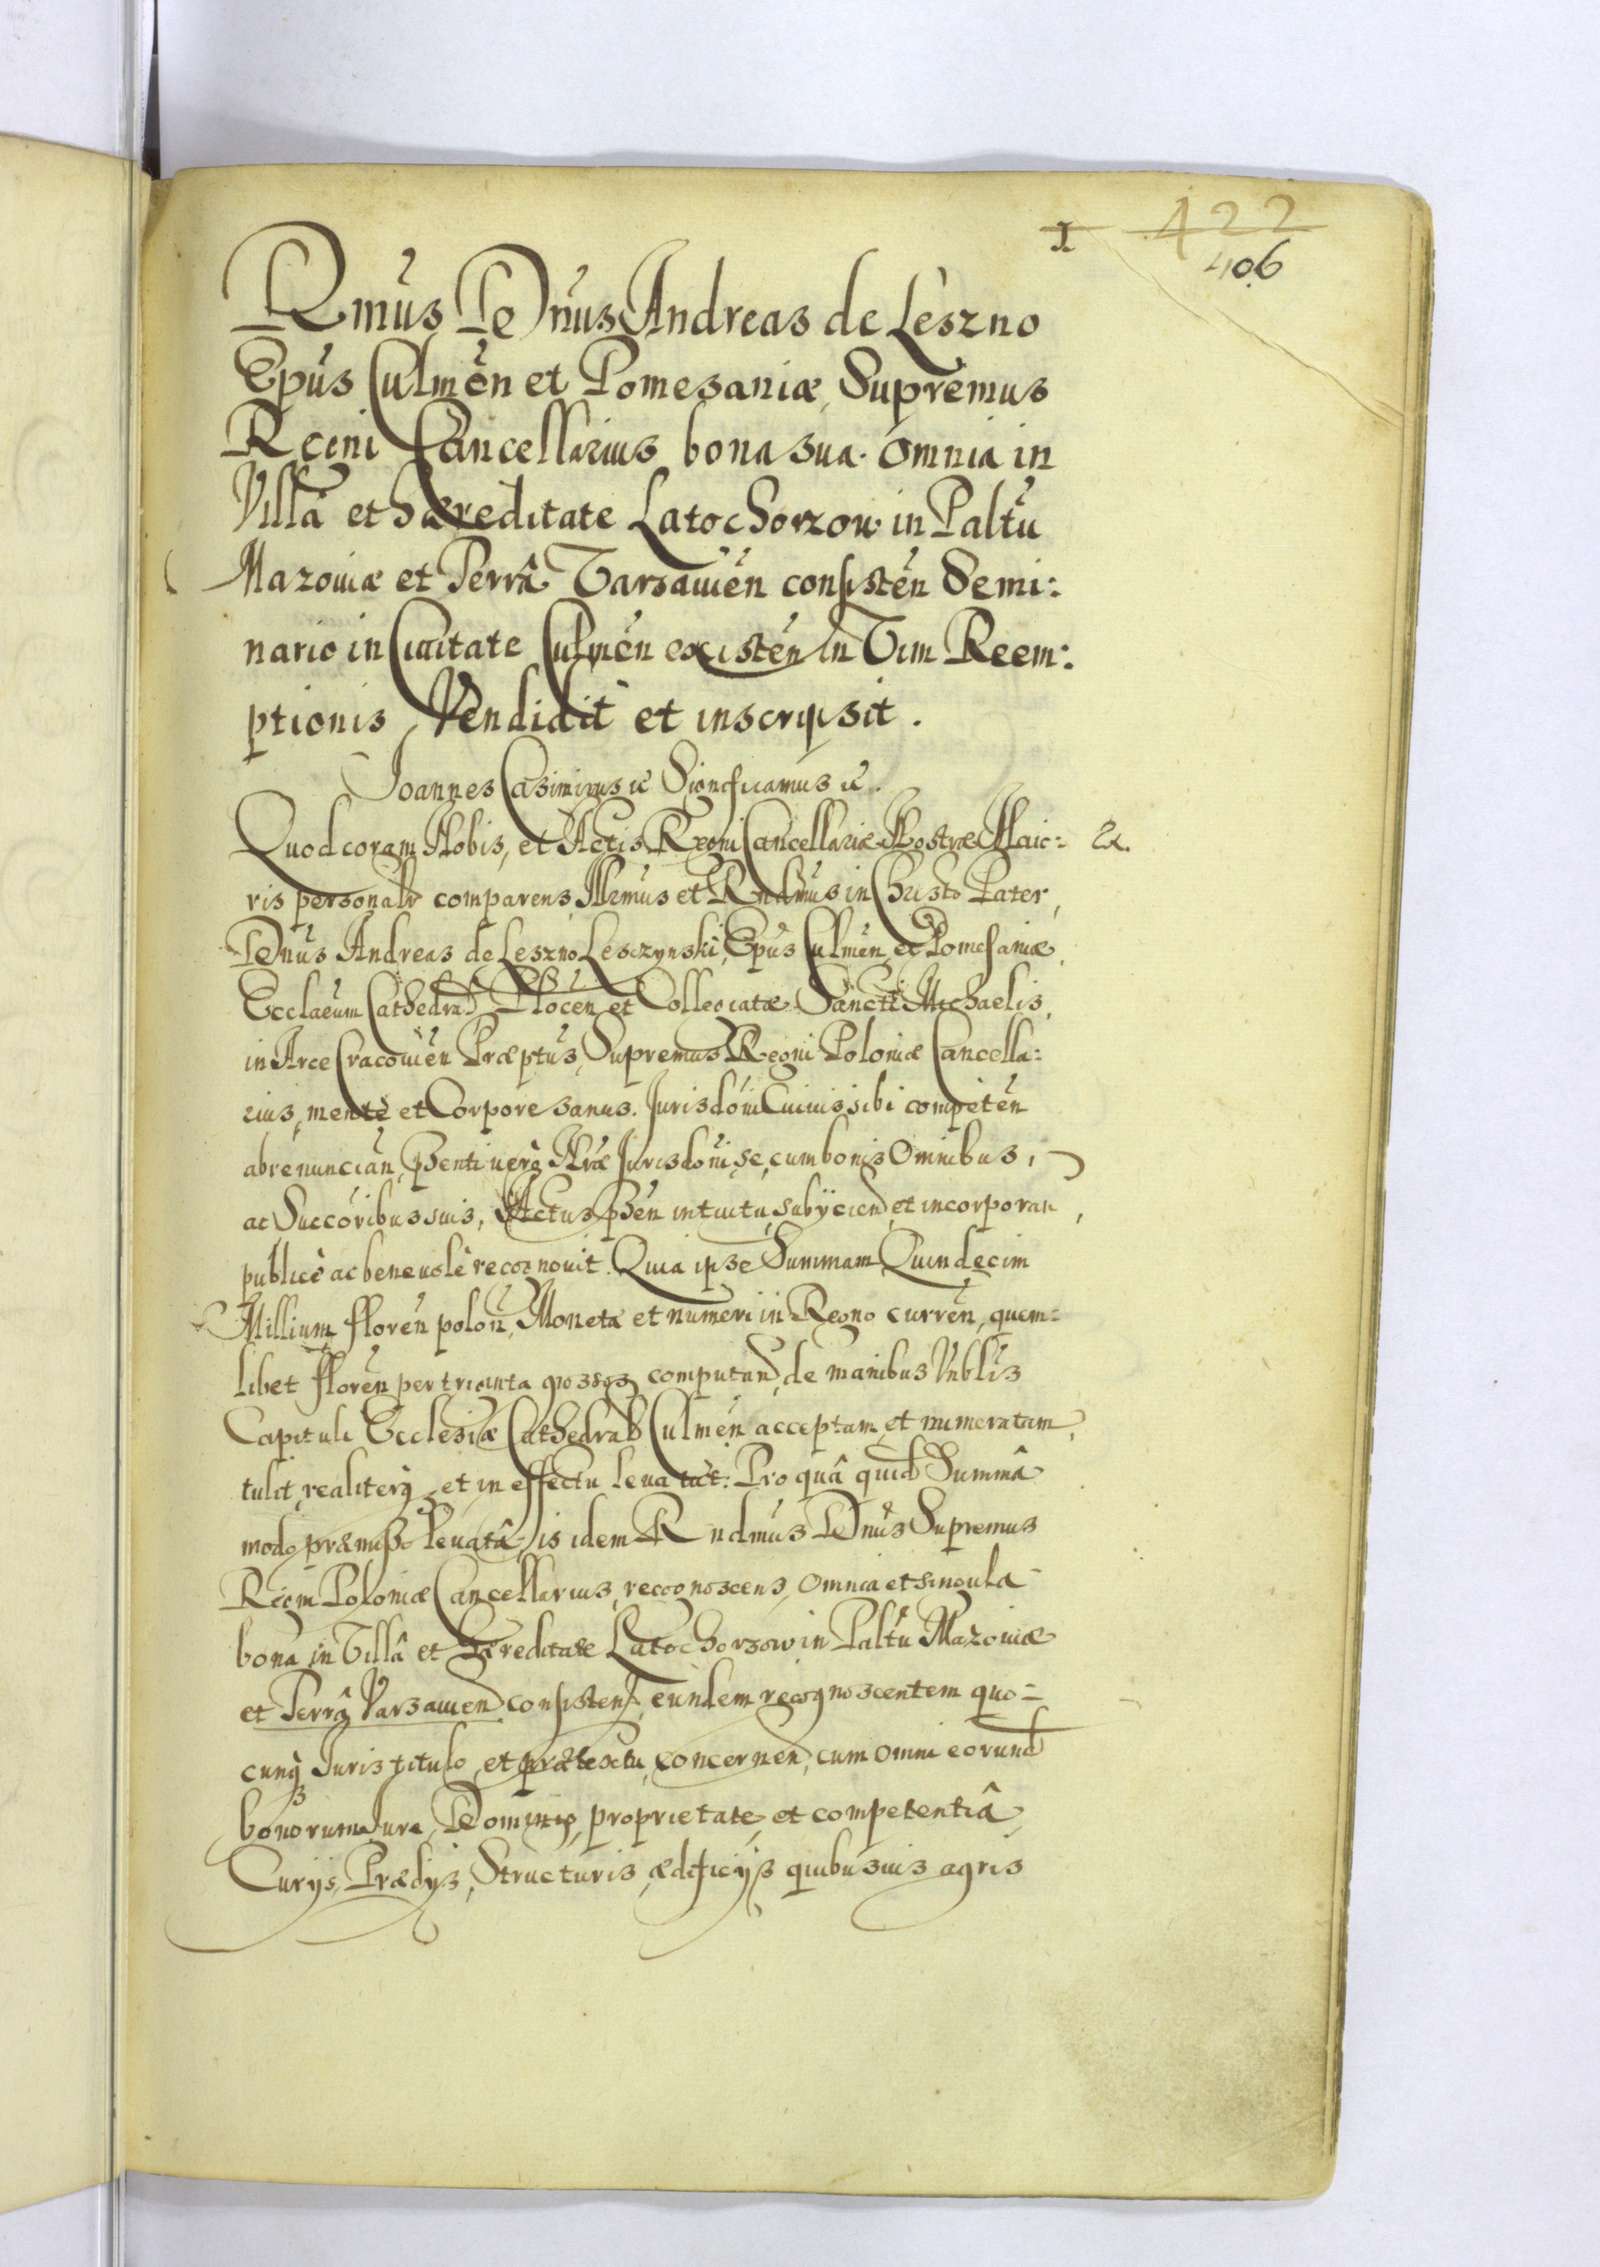 1 422
406
Rmus Dnus Andreas de Leszno
Epus Culmen et Pomesaniæ, Supremus
Regni Cancellarius bona sua omnia in
Villa et hæreditate Latochorzow in Paltu
Mazoviæ et Terrâ Varsavien consisten Semi:
nario in Civitate Culmen existen in Vim Reem:
ptionis Vendidit et inscripsit.
Joannes Casimirus etc Significamus etc.
Quod coram Nobis, et Actis Regni Cancellariæ Nostræ Maio= R.
ris personalr comparens Illmus et Rndmus in Christo Pater,
Dnus Andreas de Leszno Lesczynski, Epus Culmen, et Pomesaniæ,
Ecclaeum Cathedral Plocen et Collegiatæ Sancti Michaelis,
in Arce Cracovien Præptus, Supremus Regni Poloniæ Cancella:
rius, mente et Corpore sanus. Jurisdoni Cuivis sibi competen
abrenuncian, psenti verò Nræ Jurisdoni se, cum bonis Omnibus,
ac Succoribus suis, Actus psen intuitu, subijcien, et incorporan,
publicè ac benevolè recognovit. Quia ipse Summam Quindecim
Millium floren polon, Monetæ et numeri in Regno curren, quem=
libet floren per triginta grossos computand, de manibus Vnblis
Capituli Ecclesiæ Cathedral Culmen acceptam et numeratam
tulit, realiterq et in effectu levavit: Pro quâ quid Summâ
modo præmisso levatâ, is idem Rndmus Dnus Supremus
Regni Poloniæ Cancellarius, recognoscens, omnia et singula
bona in Villâ et hæreditate Latochorzow in Paltu Mazoviæ
et Terrâ Varsavien consisten, eundem recognoscentem quo=
cunq Juris titulo, et prætextu, concernen, cum omni eorund
bonorum Jure, Dominio, proprietate et competentiâ
Curijs, Prædijs, Structuris, ædificijs quibusvis agris